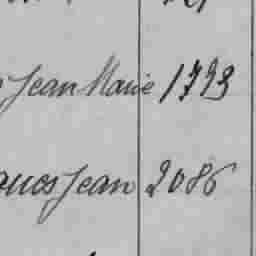 Jean Marie 1793
ques Jean 2086